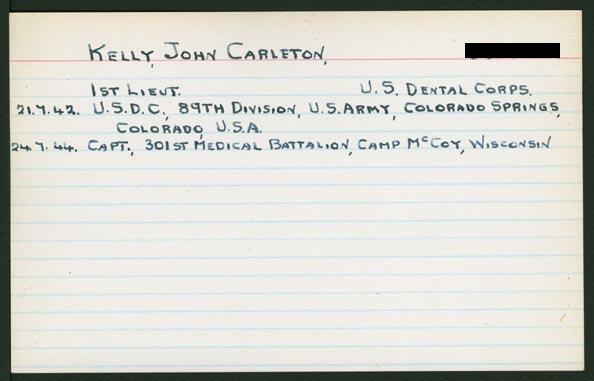 KELLY, JOHN CARLETON,
1ST LIEUT. U.S. DENTAL CORPS.
21.7.42. U.S.D.C., 89TH DIVISION, U.S. ARMY, COLORADO SPRINGS,
COLORADO, U.S.A.
24.7.44. CAPT., 301ST MEDICAL BATTALION, CAMP MCCOY, WISCONSIN